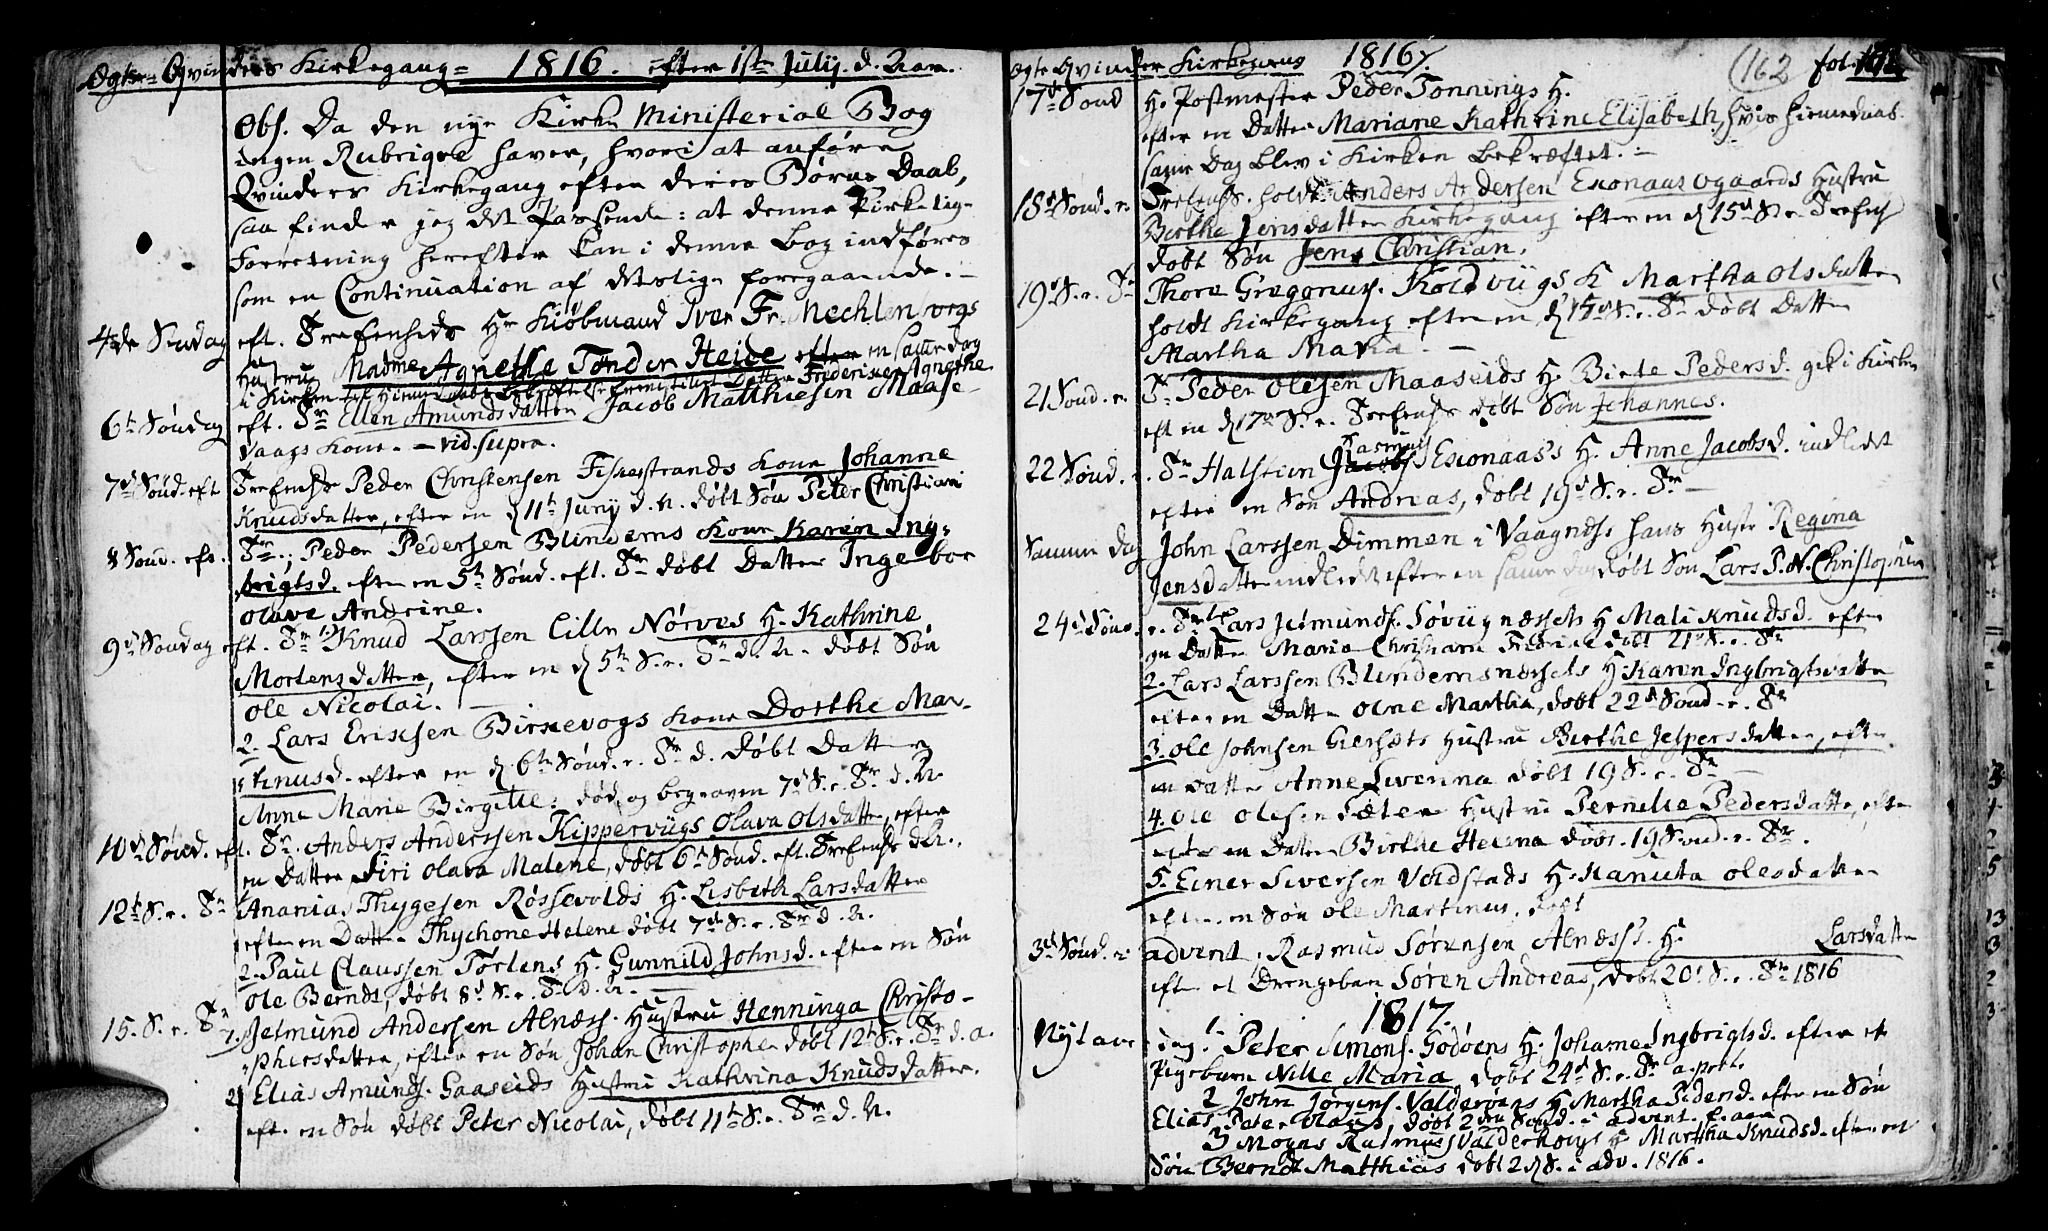 Ægte Qvinders Kirkegang 1816. efter 1ste July d. Aar.
Obs. Da den nye Kirke Ministerial Bog
ingen Rubriqve haver, hvori at anføre
Qvinders Kirkegang efter deres Børns Daab,
saa finder jeg det passende: at denne Kirkelige
Forretning herefter kan i denne Bog indføres
som en Continuation af det foregaaende.
4de Søndag eft. Trefenheds Hr Kiøbmand Iver Fr. Mechlenborgs
Hustru Madme Agnethe Tønder Heide efter en samme dag
i Kirken Datter Frederike Agnethe
6te Søndag eft. Tr. Ellen Amundsdatter Jacob Matthiesen Maase-
vaags Kone. – vid. supra.
7d Sönd. eft Trefenhs Peder Christensen Fiskerstrands Kone Johanne
Knudsdatter, efter en d 11te Juny d. A. døbt Søn Peter Christian
8 Sönd. eft. Tr. Peder Pedersen Blindems Kone Karen Ing-
brigtsd. efter en 5te Sönd. eft. Tr. døbt Datter Ingebor
Olave Andrine.
9d Søndag eft. Tr. 1) Knud Larssen Lille Nørves H. Kathrine
Mortensdatter, efter en d 5te S. e. Tr. d. A. døbt Søn
Ole Nicolai. –
2. Lars Erixsen Birkevogs Kone Dorthe Mar-
kusd. efter en d 6te Sönd. e. Tr. d. døbt Datter
Anne Marie Birgitte: død og begraven 7d S. e. Tr. d. A.
10d Sönd. eft. Tr. Anders Anderssen Kippervügs Olava Olsdatter, efter
en Datter Siri Olava Malene, døbt 6te Sönd. eft. Trefenhs d. A.
12te S. e. Tr. Ananias Thygesen Røssevolds H. Lisbeth Larsdatter
efter en Datter Thychone Helene døbt 7de S. e. Tr. d. A.
2. Paul Claussen Torlens H. Gunnild Johnsd. efter en Søn
Ole Berndt, døbt 8d S. e. Tr. d. A. –
15. S. e. Tr. 1. Jetmund Andersen Alnæss. Hustru Henninga Christo-
phersdatter, efter en Søn Johan Christopher døbt 12te S. e. Tr. d. a.
2) Elias Amunds. Gaaseids Hustru Kathrina Knudsdatter.
eft. en Søn døbt Peter Nicolai, døbt 11te S. e. Tr. d. A.
Ægte Qvinders Kirkegang 1816. (162 fol.
17d Sönd H. Postmester Peder Tonnings H.
efter en Datter Mariane Kathrine Elisabeth, hvis hiemedaab
samme Dag blev i Kirken bekræftet. –
18d Sönd. e. Trefenhs. holdt Anders Andersen Exonaasvgaards Hustru
Birthe Jensdatter Kirkegang efter en d 15d S. e. Trefenh
døbt Søn Jens Christian.
19d S. e. Tr. Thore Gregorius. Koldviigs K Martha Olsdatter
holdt Kirkegang efter en d 15d S. e. Tr. døbt Datter
Martha Maria. –
21 Sönd. e. Tr. Peder Olesen Maaseids H. Birte Pedersd. gik i Kirken
eft en d 17de S. e. Trefenhs døbt Søn Johannes.
22 Sönd. e. Tr. Halsteen Rasmus Exonaas's H. Anne Jacobsd. indledet
efter en Søn Andreas, døbt 19d S. e. Tr. –
Samme Dag John Larssen Dimmen i Vaagnæs hans Hustr Regina
Jensdatter indledt efter en samme dag døbt Søn Lars P. N. Christopher
24d Sönd. e. Tr. 1. Lars Jetmunds. Søvügnæssets H Mali Knudsd. efter
en Datter Maria Christiane Fredrike døbt 21d S. e. Tr.
2. Lars Larssen Blindemsnæssets H Karen Ingbrigtsdatter
efter en Datter Olne Marthe, døbt 22d Sönd. e. Tr.
3. Ole Johnsen Giersæts Hustru Birthe Jespersdatter, efter
en Datter Anne Severina døbt 19 S. e. Tr. –
4. Ole Olesen Sæter Hustru Pernille Pedersdatter, efter
efter en Datter Birthe Helena døbt 19 Sönd. e. Tr.
5. Einer Siversen Voldstads H. Kanuta Olesdatter
efter en Søn Ole Martinus, døbt
3d Sönd. i advent. Rasmus Sörensen Alnæss's H. Larsdatter
eft. et Drengebarn Søren Andreas, døbt 20d S. e. Tr. 1816
1817
Nytaarsdag. 1. Peter Simons. Godøens H. Johanne Ingbrigtsd. efter et
Pigebarn Nille Maria døbt 24d S. e. Tr. a. præt.
2 John Jørgens. Valderøens H Martha Pedersd. efter en Søn
Elias Peter Olaus, døbt 2den Sönd. i advent. f. aar
3 Mogns Rasmus's Valderhougs H Martha Knudsd. efter en
Søn Berndt Matthias døbt 2d S. i adv. 1816.